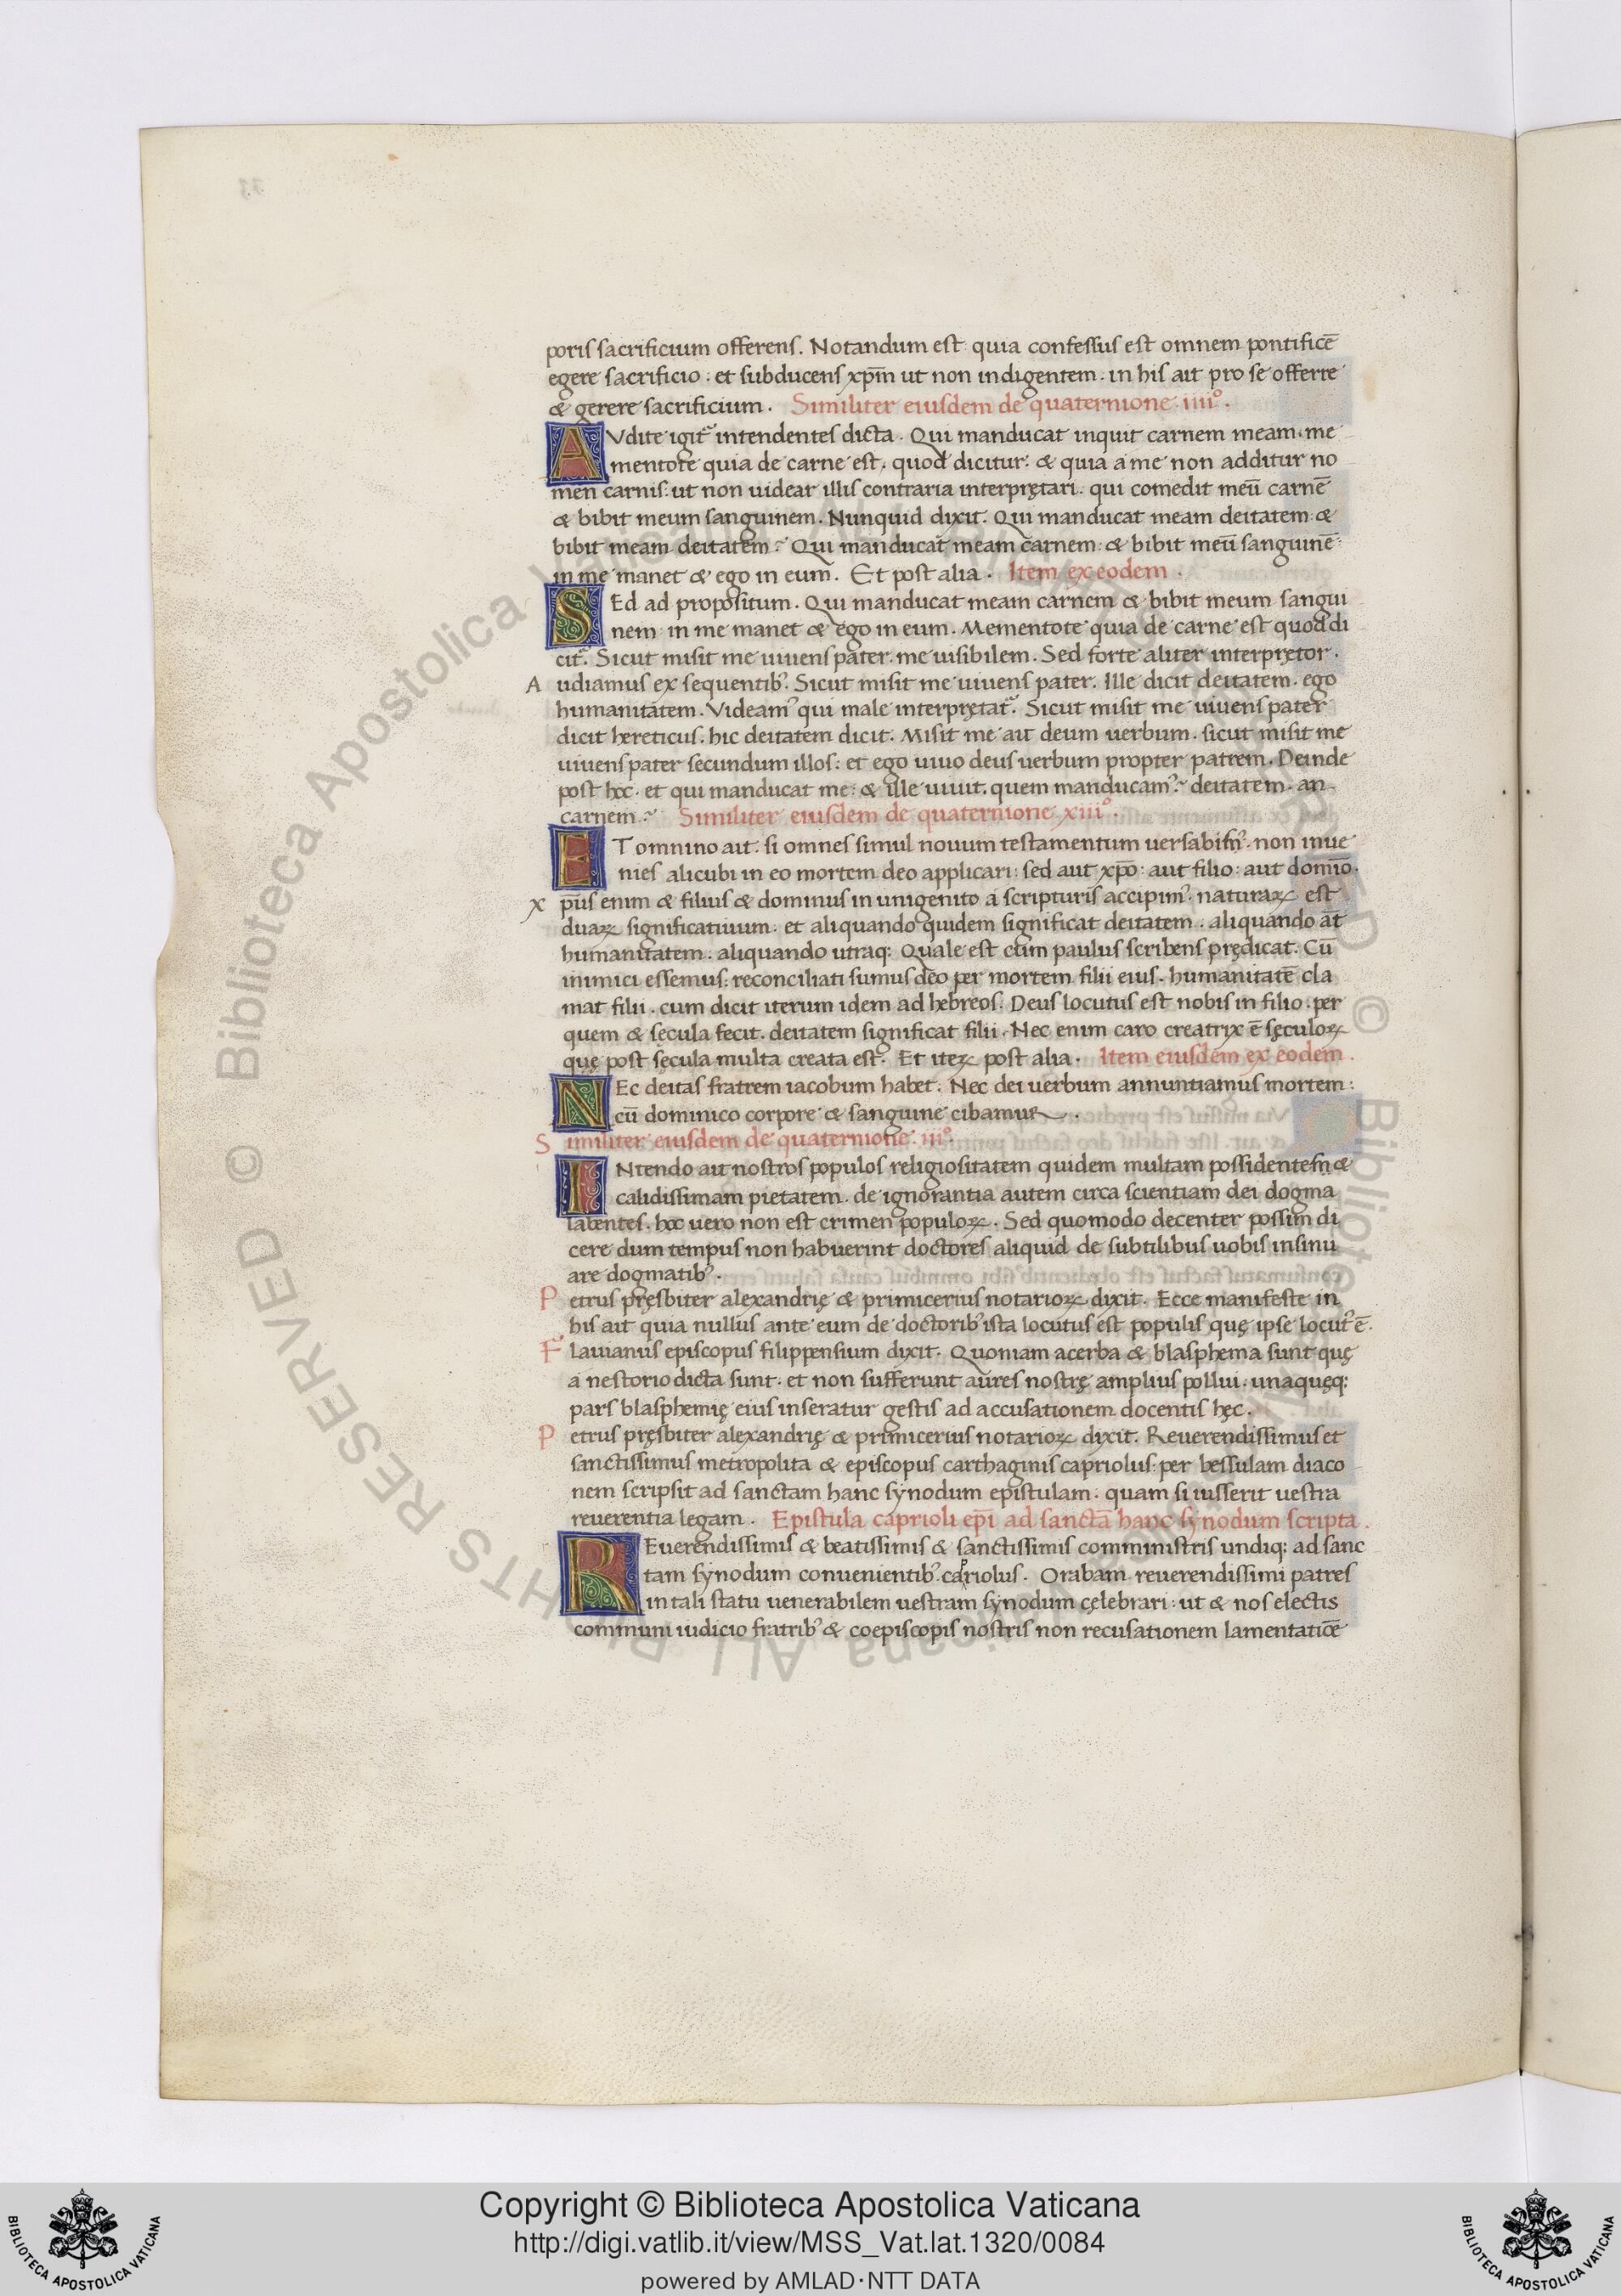 poris sacrificium offerens. Notandum est quia confessus est omnem pontificē
egere sacrificio. et subducens xp̄m ut non indigentem. in his ait pro se offerre
& gerere sacrificium. Similiter eiusdem de quaternione iiiiº.
AVdite igit᷑ intendentes dicta. Qui manducat inquit carnem meam. me
mentote quia de carne est. quod dicitur: & quia a me non additur no
men carnis: ut non uidear illis contraria interprętari. qui comedit meū carnē
& bibit meum sanguinem. Nunquid dyxit. Qui manducat meam deitatem: &
bibit meam deitatem? Qui manducat meam carnem: & bibit meū sanguinē:
in me manet & ego in eum. Et post alia. Item ex eodem.
SEd ad propositum. Qui manducat meam carnem & bibit meum sangui
nem: in me manet & ego in eum. Mementote quia de carne est quod di
cit᷑. Sicut misit me uiuens pater. me uisibilem. Sed forte aliter interprętor.
Audiamus ex sequentib᾽. Sicut misit me uiuens pater. Ille dicit deitatem. ego
humanitatem. Videam᾽ qui male interprętat᷑. Sicut misit me uiuens pater
dicit hereticus. hic deitatem dicit. Misit me ait deum uerbum. sicut misit me
uiuens pater secundum illos: et ego uiuo deus uerbum propter patrem. Deinde
post hoc. et qui manducat me: & ille uiuit. quem manducam᾽? deitatem. an
carnem? Similiter eiusdem de quaternione xiiiº.
ET omnino ait. si omnes simul nouum testamentum uersabim᾽. non inue
nies alicubi in eo mortem deo applicari: sed aut xp̄o: aut filio: aut domīo.
xp̄us enim & filius & dominus in unigenito a scripturis accipim᾽. naturaꝝ est
duaꝝ significatiuum. et aliquando quidem significat deitatem. aliquando at̄
humanitatem. aliquando utraq: Quale est cum paulus scribens prędicat. Cū
inimici essemus: reconciliati sumus deo per mortem filii eius. humanitatē cla
mat filii. cum dicit iterum idem ad hebreos. Deus locutus est nobis in filio. per
quem & sęcula fecit. deitatem significat filii. Nec enim caro creatryx ē sęculoꝝ
quę post sęcula multa creata est. Et iteꝝ post alia. Item eiusdem ex eodem.
NEc deitas fratrem iacobum habet. Nec dei uerbum annuntiamus mortem:
cū dominico corpore & sanguine cibamur.
Similiter eiusdem de quaternione iiiº.
INtendo ait nostros populos religiositatem quidem multam possidentem &
calidissimam pietatem. de ignorantia autem circa scientiam dei dogma
labentes. hoc uero non est crimen populoꝝ. Sed quomodo decenter possim di
cere dum tempus non habuerint doctores aliquid de subtilibus uobis insinu
are dogmatib᾽.
Petrus pręsbiter alexandrię & primicerius notarioꝝ dyxit. Ecce manifeste in
his ait quia nullus ante eum de doctorib᾽ ista locutus est populis quę ipse locut᾽ ē.
Flauianus episcopus filippensium dyxit. Quoniam acerba & blasphema sunt quę
a nestorio dicta sunt. et non sufferunt aures nostrę amplius pollui. unaquęq:
pars blasphemię eius inseratur gestis ad accusationem docentis hęc.
Petrus pręsbiter alexandrię & primicerius notarioꝝ dyxit. Reuerendissimus et
sanctissimus metropolita & episcopus carthaginis capriolus: per bessulam diaco
nem scripsit ad sanctam hanc synodum epistulam. quam si iusserit uestra
reuerentia legam. Epistula caprioli ep̄i ad sanctā hanc synodum scripta.
REuerendissimis & beatissimis & sanctissimis comministris undiq: ad sanc
tam synodum conuenientib᾽ capriolus. Orabam reuerendissimi patres
in tali statu uenerabilem uestram synodum cęlebrari: ut & nos electis
communi iudicio fratrib᾽ & coepiscopis nostris non recusationem lamentatiōe
Copyright © Biblioteca Apostolica Vaticana
http://digi.vatlib.it/view/MSS_Vat.lat.1320/0084
powered by AMLAD·NTT DATA
BIBLIOTECA APOSTOLICA VATICANA
BIBLIOTECA APOSTOLICA VATICANA
© Biblioteca Apostolica Vaticana ALL RIGHTS RESERVED